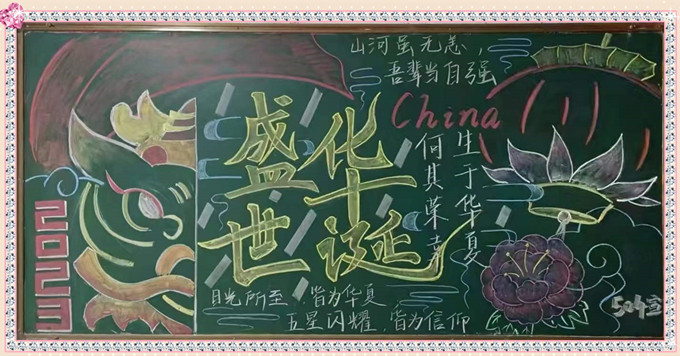 山河虽无恙，
吾辈当自强
China
盛世
华诞
生于华夏
何其荣幸
2023
目光所至，皆为华夏，
五星闪耀，皆为信仰